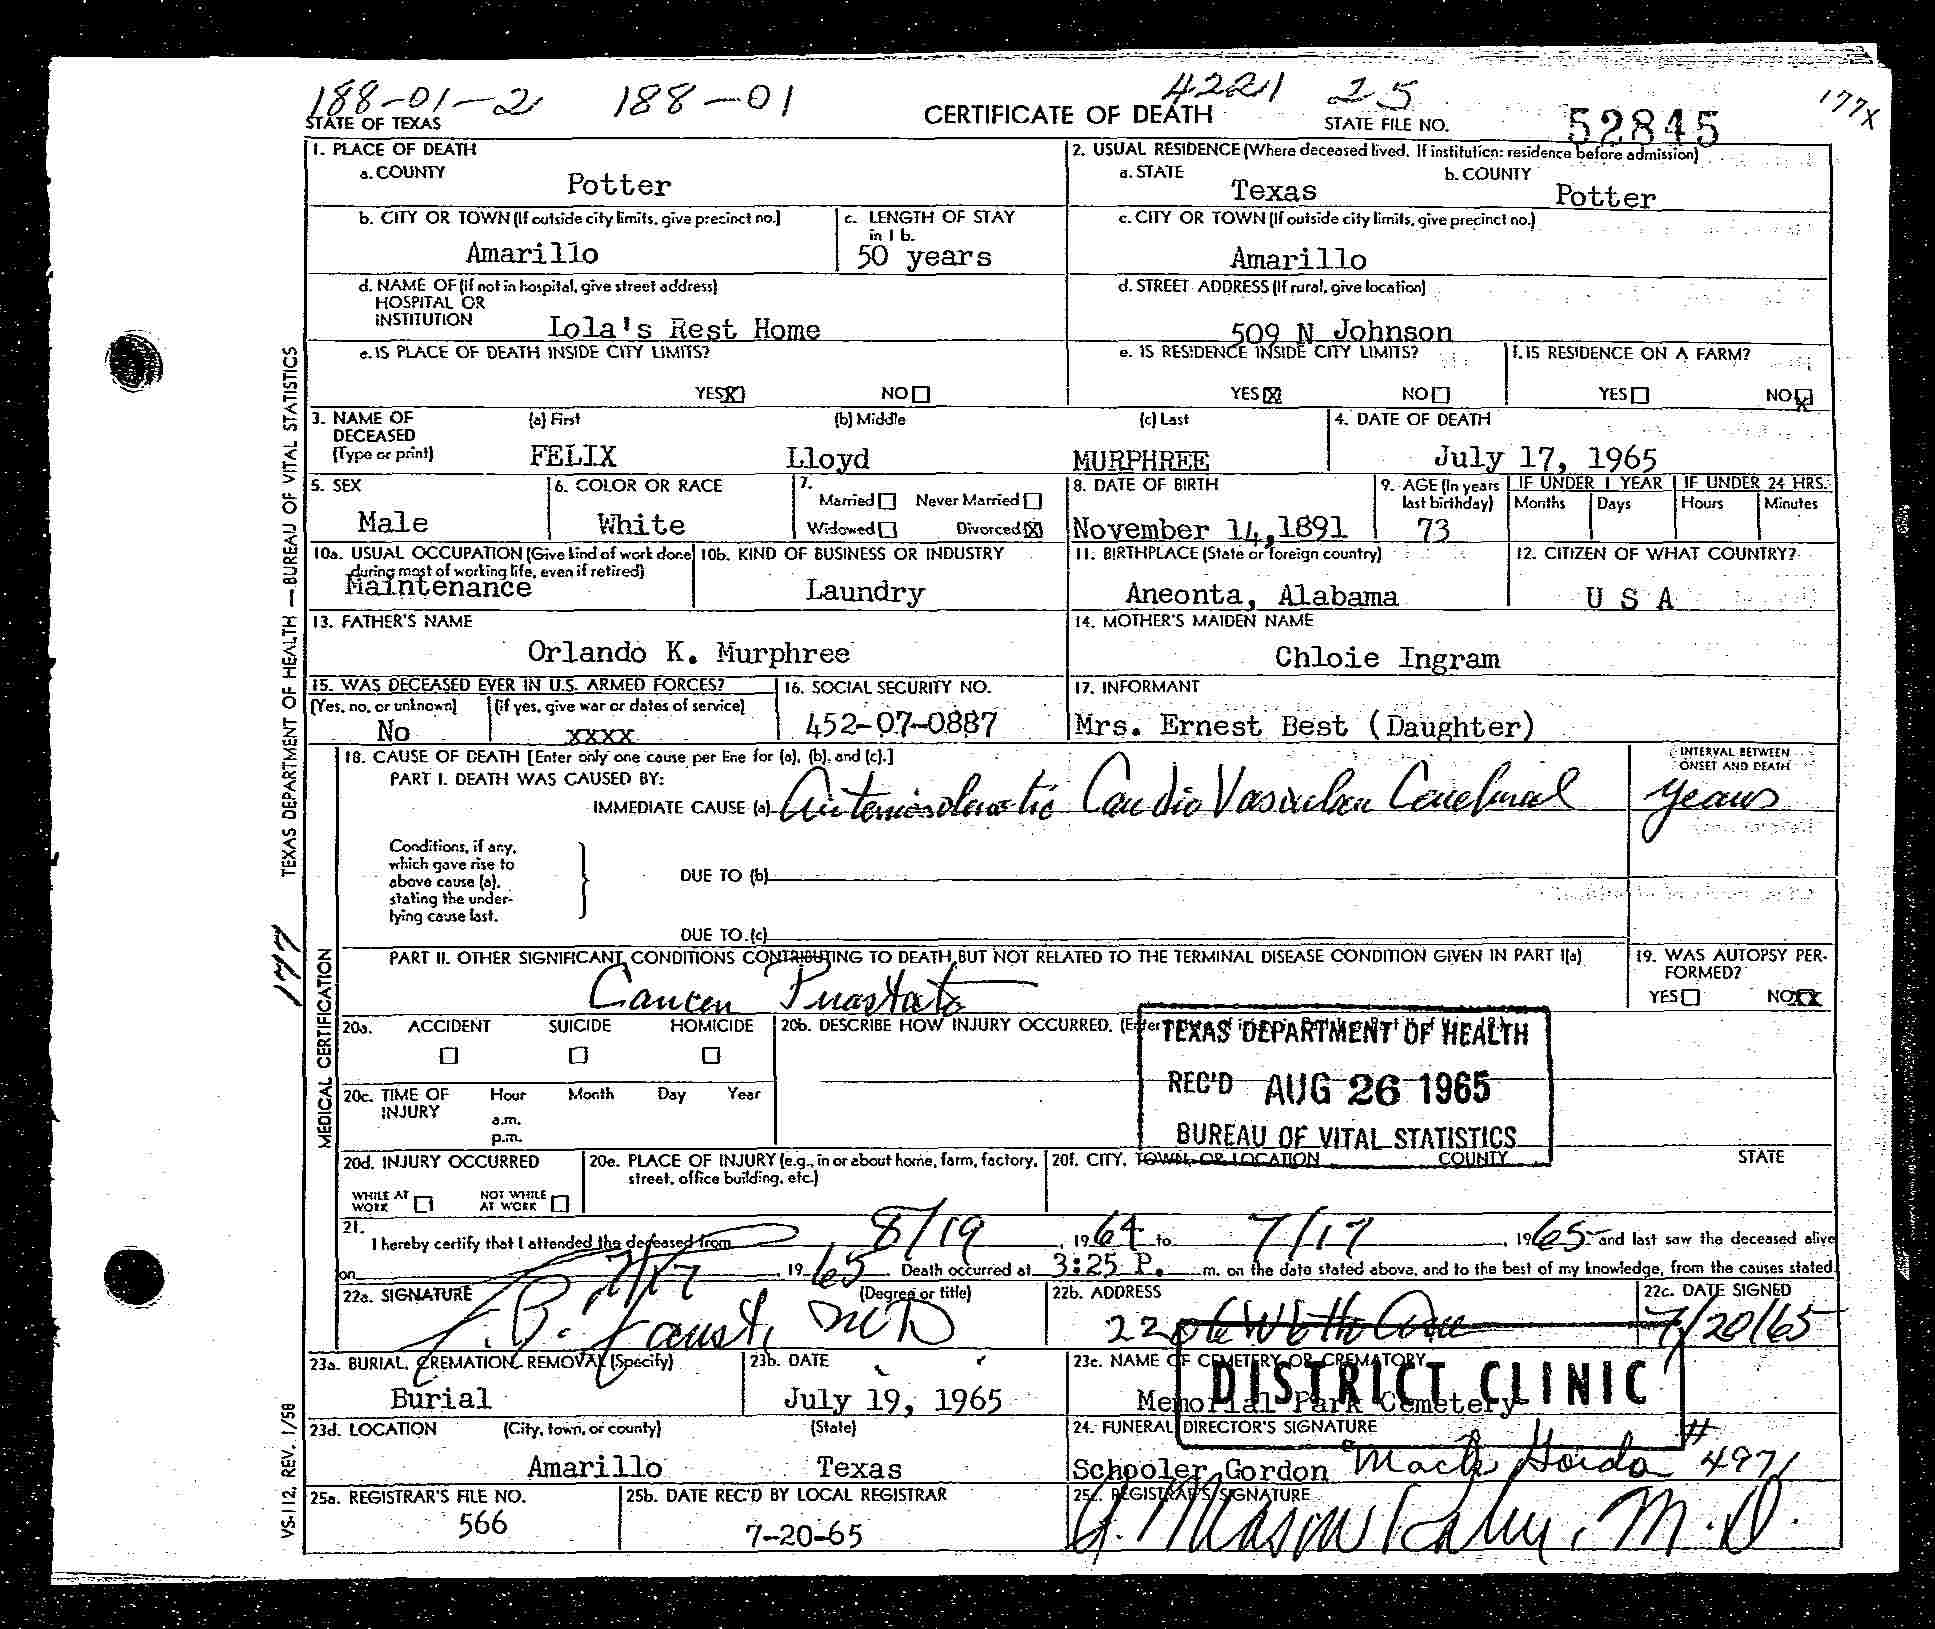 188-01-2 188-01 4221 25 177X
STATE OF TEXAS CERTIFICATE OF DEATH STATE FILE NO. 52845
1. PLACE OF DEATH
a. COUNTY Potter
2. USUAL RESIDENCE (Where deceased lived. If institution: residence before admission)
a. STATE Texas b. COUNTY Potter
b. CITY OR TOWN (If outside city limits, give precinct no.) Amarillo
c. LENGTH OF STAY in 1 b. 50 years
c. CITY OR TOWN (If outside city limits, give precinct no.) Amarillo
d. NAME OF (If not in hospital, give street address)
HOSPITAL OR
INSTITUTION Lola's Rest Home
d. STREET ADDRESS (If rural, give location)
509 N Johnson
e. IS PLACE OF DEATH INSIDE CITY LIMITS?
YES X NO
e. IS RESIDENCE INSIDE CITY LIMITS?
YES X NO
f. IS RESIDENCE ON A FARM?
YES NO X
3. NAME OF DECEASED (Type or print)
(a) First FELIX (b) Middle Lloyd (c) Last MURPHREE
4. DATE OF DEATH July 17, 1965
5. SEX Male
6. COLOR OR RACE White
7. Married Never Married
Widowed Divorced X
8. DATE OF BIRTH November 14, 1891
9. AGE (In years last birthday) 73
IF UNDER 1 YEAR Months Days
IF UNDER 24 HRS. Hours Minutes
10a. USUAL OCCUPATION (Give kind of work done during most of working life, even if retired) Maintenance
10b. KIND OF BUSINESS OR INDUSTRY Laundry
11. BIRTHPLACE (State or foreign country) Aneonta, Alabama
12. CITIZEN OF WHAT COUNTRY? U S A
13. FATHER'S NAME Orlando K. Murphree
14. MOTHER'S MAIDEN NAME Chloie Ingram
15. WAS DECEASED EVER IN U.S. ARMED FORCES?
(Yes, no, or unknown) No
(If yes, give war or dates of service) xxxx
16. SOCIAL SECURITY NO. 452-07-0887
17. INFORMANT Mrs. Ernest Best (Daughter)
18. CAUSE OF DEATH [Enter only one cause per line for (a), (b), and (c).]
PART I. DEATH WAS CAUSED BY:
IMMEDIATE CAUSE (a) Arteriosclerotic Cardio Vascular Cerebral
INTERVAL BETWEEN ONSET AND DEATH years
Conditions, if any, which gave rise to above cause (a), stating the underlying cause last.
DUE TO (b)
DUE TO (c)
PART II. OTHER SIGNIFICANT CONDITIONS CONTRIBUTING TO DEATH BUT NOT RELATED TO THE TERMINAL DISEASE CONDITION GIVEN IN PART I(a)
Cancer Prostate
19. WAS AUTOPSY PERFORMED?
YES NO XX
20a. ACCIDENT SUICIDE HOMICIDE
20b. DESCRIBE HOW INJURY OCCURRED.
TEXAS DEPARTMENT OF HEALTH
REC'D AUG 26 1965
BUREAU OF VITAL STATISTICS
20c. TIME OF INJURY Hour Month Day Year
a.m.
p.m.
20d. INJURY OCCURRED
WHILE AT WORK NOT WHILE AT WORK
20e. PLACE OF INJURY (e.g., in or about home, farm, factory, street, office building, etc.)
20f. CITY, TOWN, OR LOCATION COUNTY STATE
21. I hereby certify that I attended the deceased from 8/19, 1964 to 7/17, 1965 and last saw the deceased alive
on 7/17, 1965. Death occurred at 3:25 P. m. on the date stated above, and to the best of my knowledge, from the causes stated.
22a. SIGNATURE (Degree or title) Faust, MD
22b. ADDRESS
22c. DATE SIGNED 7/20/65
DISTRICT CLINIC
23a. BURIAL, CREMATION, REMOVAL (Specify) Burial
23b. DATE July 19, 1965
23c. NAME OF CEMETERY OR CREMATORY Memorial Park Cemetery
23d. LOCATION (City, town, or county) Amarillo (State) Texas
24. FUNERAL DIRECTOR'S SIGNATURE
Schooler Gordon Mack Gordon #4971
25a. REGISTRAR'S FILE NO. 566
25b. DATE REC'D BY LOCAL REGISTRAR 7-20-65
25c. REGISTRAR'S SIGNATURE
M.D.
TEXAS DEPARTMENT OF HEALTH — BUREAU OF VITAL STATISTICS
MEDICAL CERTIFICATION
177
VS-112, REV. 1/58